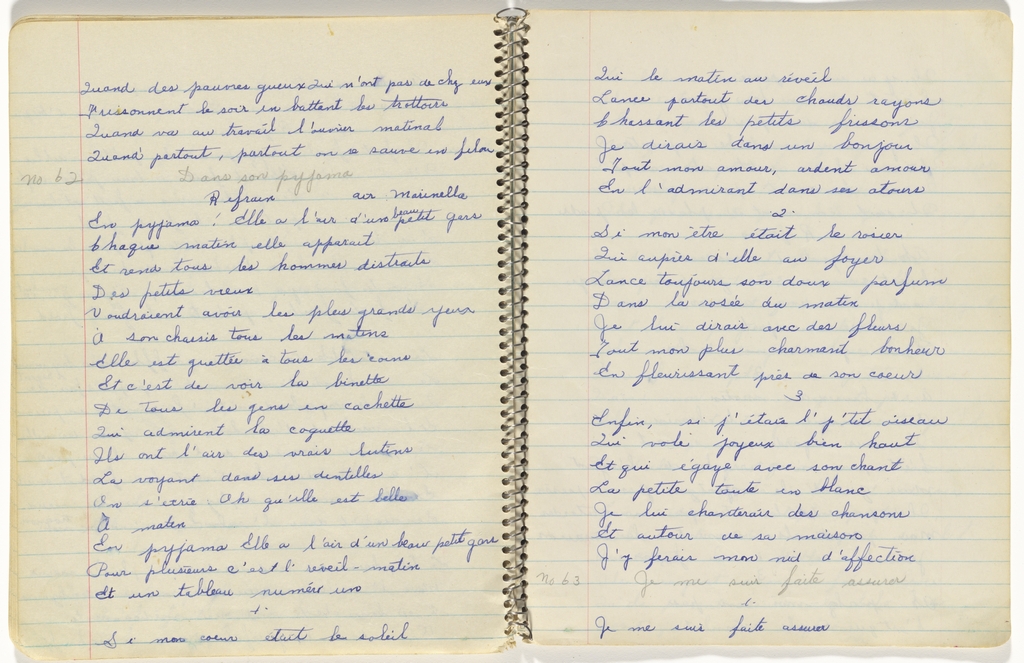 Quand des pauvres gueux Qui n'ont pas de chez eux
Frissonnent le soir en battent les trottoirs
Quand va au travail l'ouvrier matinal
Quand partout, partout on se sauve en filou
No 62 Dans son pyjama
Refrain air Marinella
En pyjama! Elle a l'air d'un beau petit gars
Chaque matin elle apparait
Et rend tous les hommes distraits
Des petits vieux
Voudraient avoir les plus grands yeux
À son chassis tous les matins
Elle est guettée à tous les coins
Et c'est de voir la binette
De tous les gens en cachette
Qui admirent la coquette
Ils ont l'air des vrais lutins
La voyant dans ses dentelles
On s'écrie Oh qu'elle est belle
matin
En pyjama Elle a l'air d'un beau petit gars
Pour plusieurs c'est l'reveil-matin
Et un tableau numéro un
1.
Si mon coeur était le soleil
Qui le matin au réveil
Lance partout des chauds rayons
Chassant les petits frissons
Je dirais dans un bonjour
Tout mon amour, ardent amour
En l'admirant dans ses atours
2.
Si mon être était le rosier
Qui auprès d'elle au foyer
Lance toujours son doux parfum
Dans la rosée du matin
Je lui dirais avec des fleurs
Tout mon plus charmant bonheur
En fleurissant près de son coeur
3
Enfin, si j'étais l'p'tit oiseau
Qui vole joyeux bien haut
Et qui égaye avec son chant
La petite toute en blanc
Je lui chanterais des chansons
Et autour de sa maison
J'y ferais mon nid d'affection
No 63 Je me suis faite assurer
1.
Je me suis faite assurer